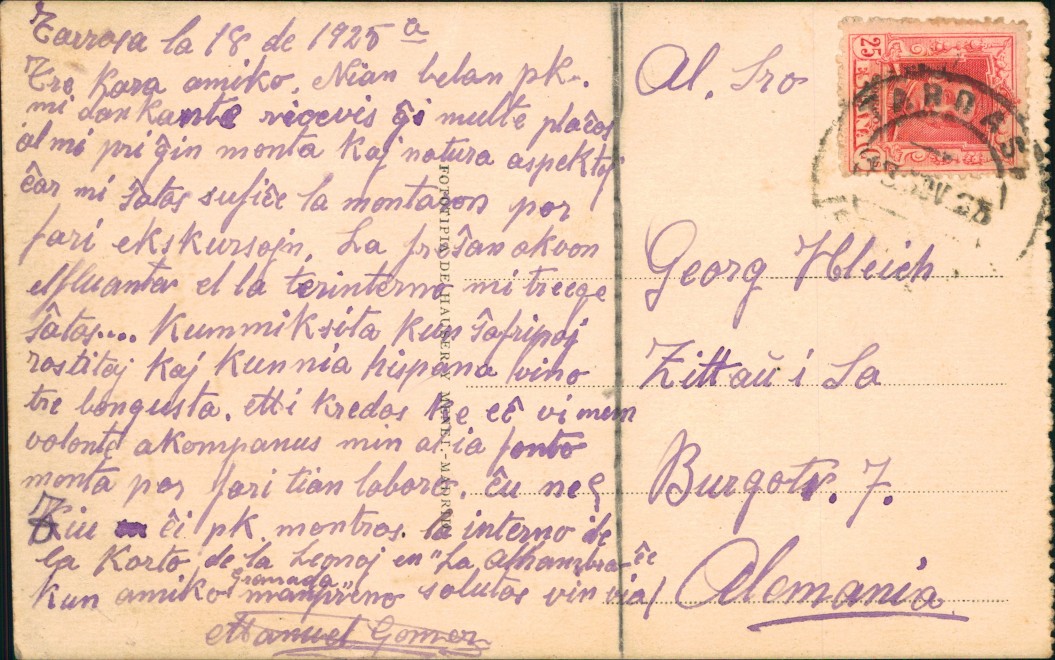 Tarrasa la 18 de 1925 a
Tre kara amiko. Nian belan pk.
mi dankante ricevis ĝi multe plaĉas
al mi pri ĝin monta kaj natura aspektoj
ĉar mi ŝatas sufiĉe la montaron por
fari ekskursojn. La freŝan akvon
el la mi treege
ŝatas.... Kunmiksita kun ŝafripoj
rostitaj kaj kun nia hispana vino
tre bongusta. Mi kredas ke eĉ vi mem
volonte akompanus min al ia fonto
monta por fari tian laboro. ĉu ne?
Kiu ĉi pk. montros. la interno de
la Korto de la Leonoj en "La Alhambra ĉe
Granada"
kun amiko salutas vin via
Manuel Gomez
FOTOTIPIA DE HAUSER Y MENET.-MADRID
Al. Sro
Georg Hleich
Zittaŭ i Sa
Burgstr. 7.
Alemania
25
NOV 25